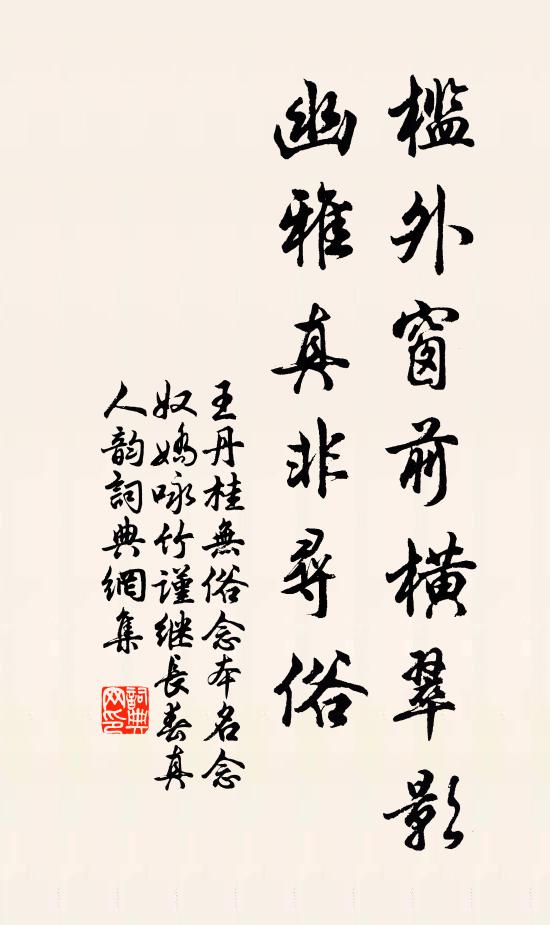 檻外窗前橫翠影
幽雅真非尋俗
王丹桂無俗念本名念
奴嬌咏竹謹继長春真
人韵詞典網集
詞典
网印